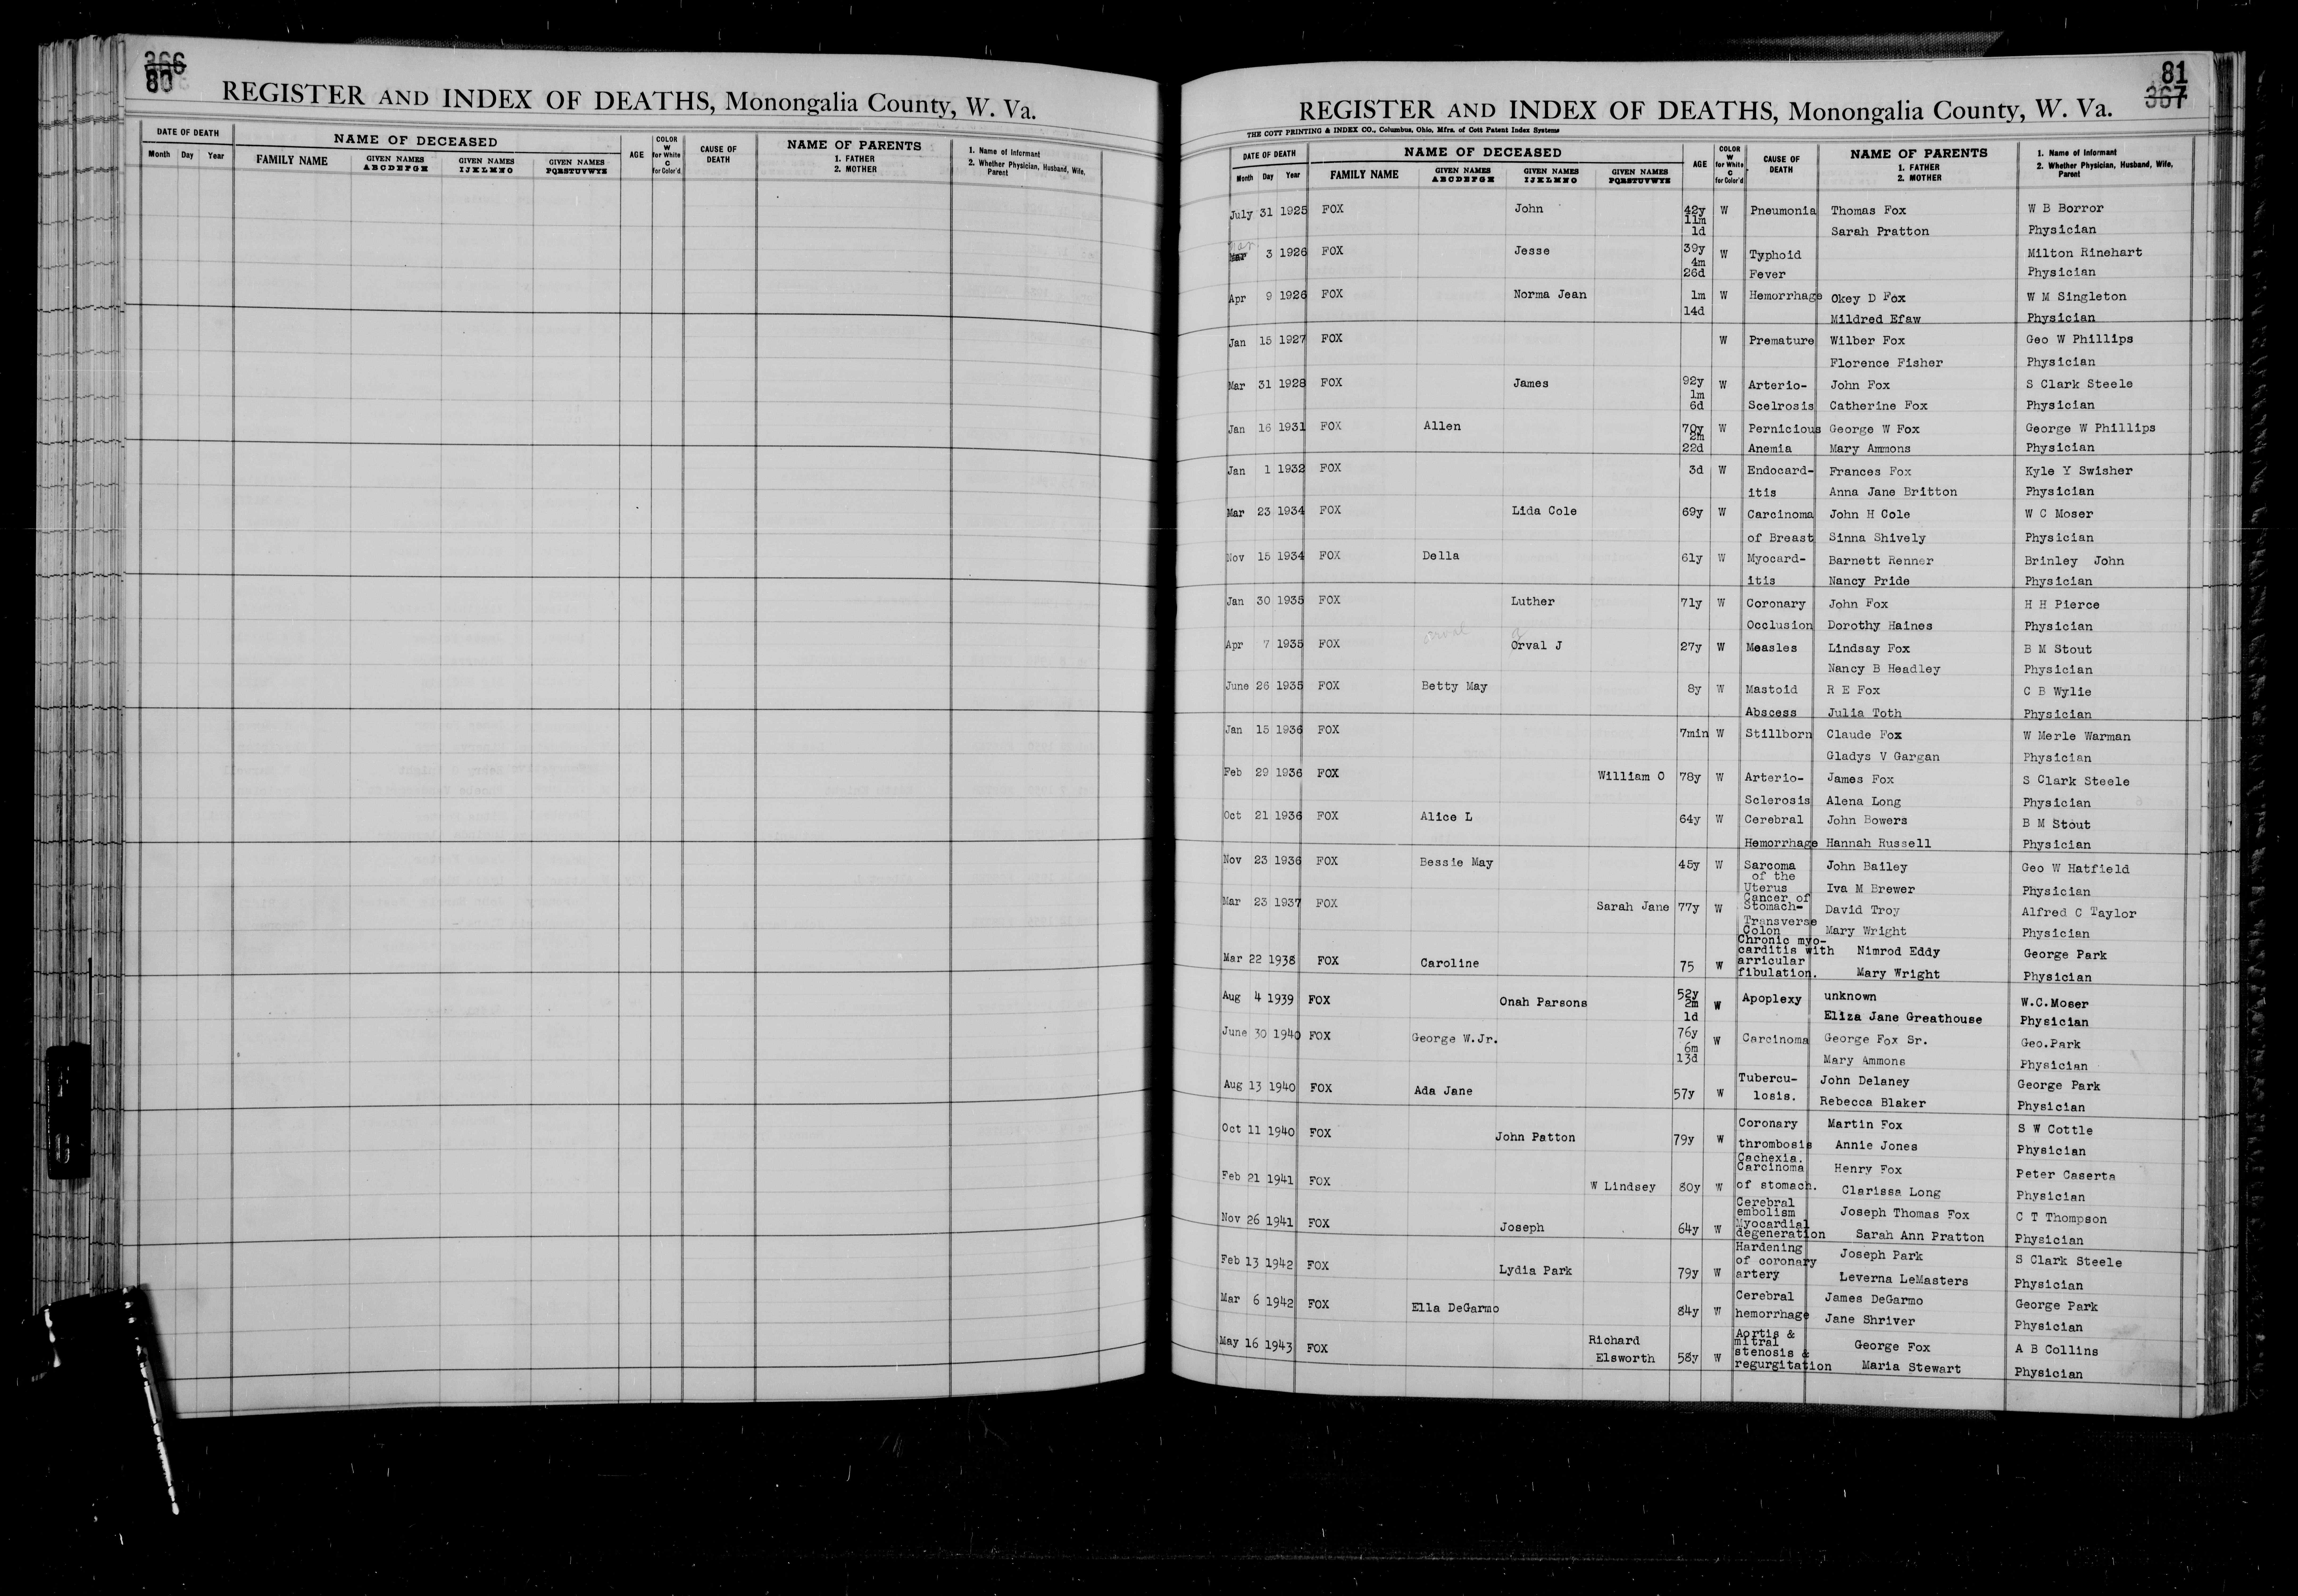 366
80
REGISTER AND INDEX OF DEATHS, Monongalia County, W. Va.
DATE OF DEATH NAME OF DECEASED AGE COLOR W for White C for Color'd CAUSE OF DEATH NAME OF PARENTS 1. FATHER 2. MOTHER 1. Name of Informant 2. Whether Physician, Husband, Wife, Parent
Month Day Year FAMILY NAME GIVEN NAMES ABCDEFGH GIVEN NAMES IJKLMNO GIVEN NAMES PQRSTUVWYZ
81
367
REGISTER AND INDEX OF DEATHS, Monongalia County, W. Va.
THE COTT PRINTING & INDEX CO., Columbus, Ohio, Mfrs. of Cott Patent Index Systems
DATE OF DEATH NAME OF DECEASED AGE COLOR W for White C for Color'd CAUSE OF DEATH NAME OF PARENTS 1. FATHER 2. MOTHER 1. Name of Informant 2. Whether Physician, Husband, Wife, Parent
Month Day Year FAMILY NAME GIVEN NAMES ABCDEFGH GIVEN NAMES IJKLMNO GIVEN NAMES PQRSTUVWYZ
July 31 1925 FOX John 42y W Pneumonia Thomas Fox W B Borror
11m
1d Sarah Pratton Physician
Mar 3 1926 FOX Jesse 39y W Typhoid Milton Rinehart
4m
26d Fever Physician
Apr 9 1926 FOX Norma Jean 1m W Hemorrhage Okey D Fox W M Singleton
14d Mildred Efaw Physician
Jan 15 1927 FOX W Premature Wilber Fox Geo W Phillips
Florence Fisher Physician
Mar 31 1928 FOX James 92y W Arterio- John Fox S Clark Steele
1m
6d Scelrosis Catherine Fox Physician
Jan 16 1931 FOX Allen 70y W Pernicious George W Fox George W Phillips
2m
22d Anemia Mary Ammons Physician
Jan 1 1932 FOX 3d W Endocard- Frances Fox Kyle Y Swisher
itis Anna Jane Britton Physician
Mar 23 1934 FOX Lida Cole 69y W Carcinoma John H Cole W C Moser
of Breast Sinna Shively Physician
Nov 15 1934 FOX Della 61y W Myocard- Barnett Renner Brinley John
itis Nancy Pride Physician
Jan 30 1935 FOX Luther 71y W Coronary John Fox H H Pierce
Occlusion Dorothy Haines Physician
Apr 7 1935 FOX Orval J 27y W Measles Lindsay Fox B M Stout
Nancy B Headley Physician
June 26 1935 FOX Betty May 8y W Mastoid R E Fox C B Wylie
Abscess Julia Toth Physician
Jan 15 1936 FOX 7min W Stillborn Claude Fox W Merle Warman
Gladys V Gargan Physician
Feb 29 1936 FOX William O 78y W Arterio- James Fox S Clark Steele
Sclerosis Alena Long Physician
Oct 21 1936 FOX Alice L 64y W Cerebral John Bowers B M Stout
Hemorrhage Hannah Russell Physician
Nov 23 1936 FOX Bessie May 45y W Sarcoma John Bailey Geo W Hatfield
of the
Uterus Iva M Brewer Physician
Mar 23 1937 FOX Sarah Jane 77y W Cancer of
Stomach- David Troy Alfred C Taylor
Transverse
Colon Mary Wright Physician
Mar 22 1938 FOX Caroline 75 W Chronic myo-
carditis with Nimrod Eddy George Park
arricular
fibulation. Mary Wright Physician
Aug 4 1939 FOX Onah Parsons 52y W Apoplexy unknown W.C.Moser
2m
1d Eliza Jane Greathouse Physician
June 30 1940 FOX George W.Jr. 76y W Carcinoma George Fox Sr. Geo.Park
6m
13d Mary Ammons Physician
Aug 13 1940 FOX Ada Jane 57y W Tubercu- John Delaney George Park
losis. Rebecca Blaker Physician
Oct 11 1940 FOX John Patton 79y W Coronary Martin Fox S W Cottle
thrombosis Annie Jones Physician
Feb 21 1941 FOX W Lindsey 80y W Cachexia.
Carcinoma Henry Fox Peter Caserta
of stomach. Clarissa Long Physician
Nov 26 1941 FOX Joseph 64y W Cerebral
embolism Joseph Thomas Fox C T Thompson
Myocardial
degeneration Sarah Ann Pratton Physician
Feb 13 1942 FOX Lydia Park 79y W Hardening
of coronary Joseph Park S Clark Steele
artery Leverna LeMasters Physician
Mar 6 1942 FOX Ella DeGarmo 84y W Cerebral James DeGarmo George Park
hemorrhage Jane Shriver Physician
May 16 1943 FOX Richard Aortis &
mitral George Fox A B Collins
Elsworth 58y W stenosis &
regurgitation Maria Stewart Physician